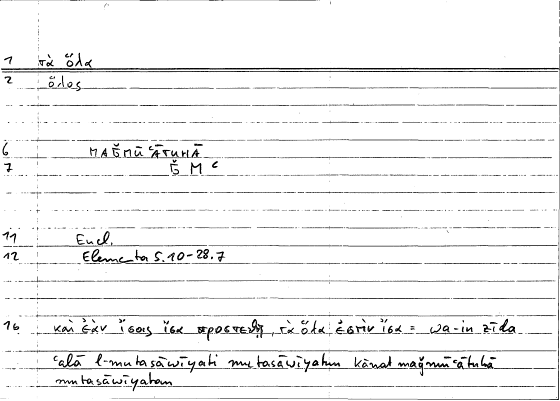 1 τὰ ὅλα
2 ὅλος
6 MAǦMŪʿĀTUHĀ
7 Ǧ M ʿ
11 Eucl.
12 Elementa 5.10-28.7
16 καὶ ἐὰν ἴσοις ἴσα προστεθῇ, τὰ ὅλα ἐστὶν ἴσα = wa-in zīda
ʿalā l-mutasāwīyati mutasāwīyatun kānat maǧmūʿātuhā
mutasāwīyatan